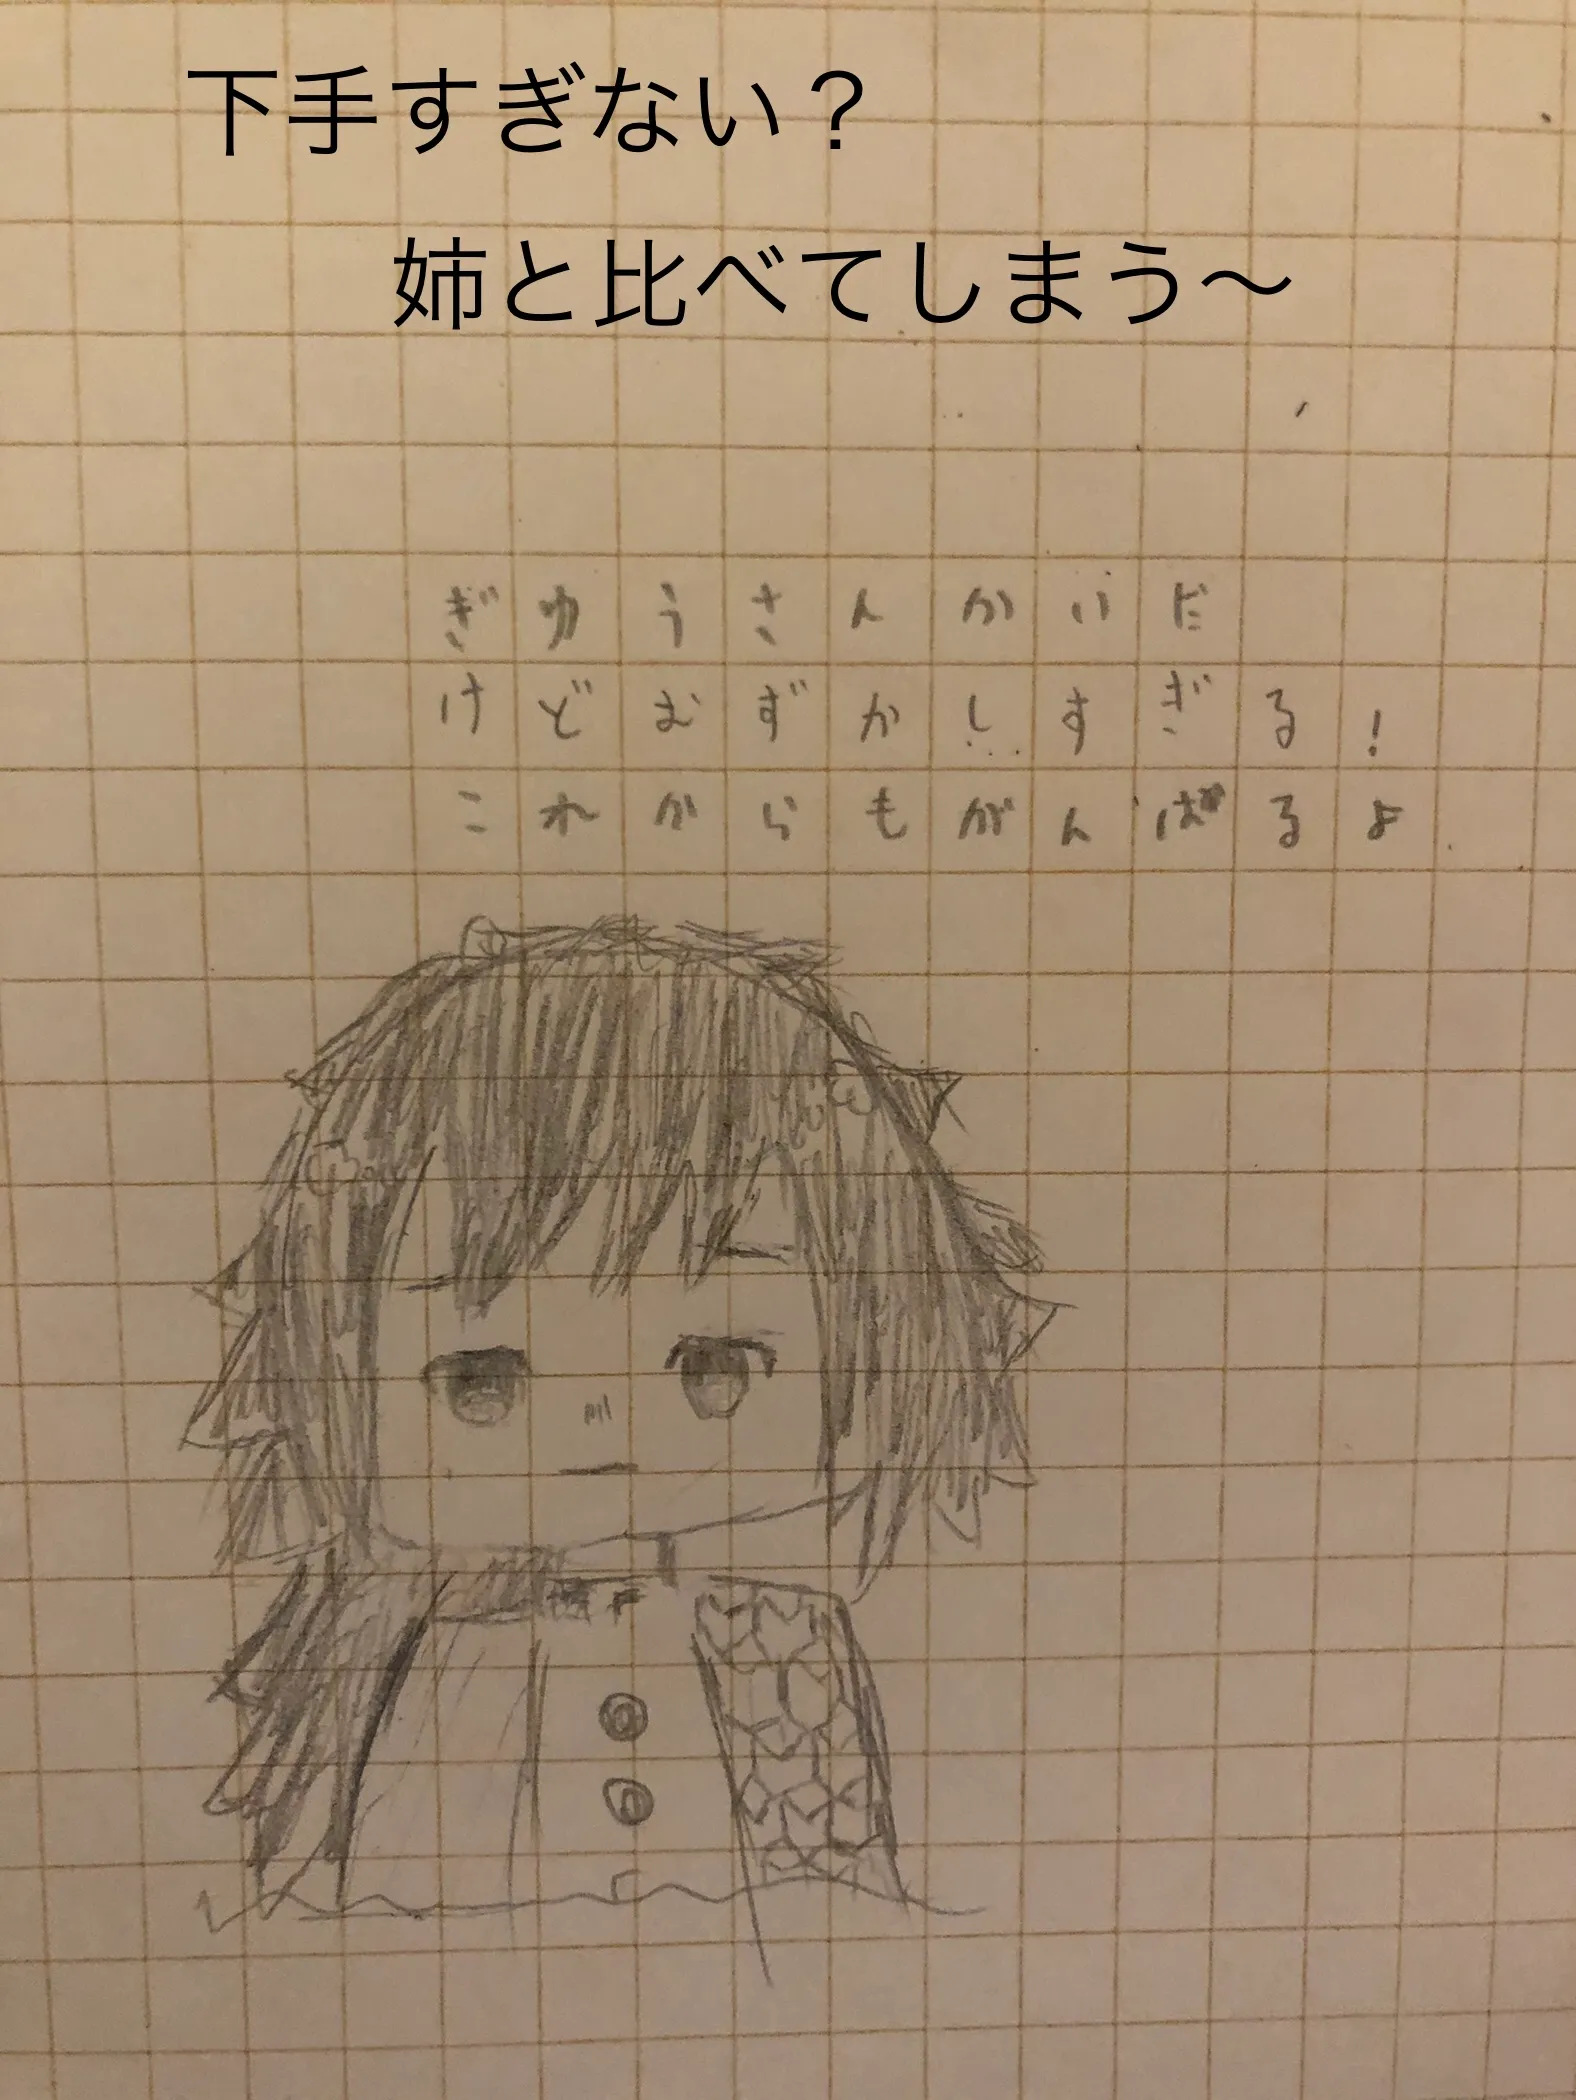 下手すぎない？
姉と比べてしまう〜
ぎゆうさんかいだ
けどむずかしすぎる！
これからもがんばるよ